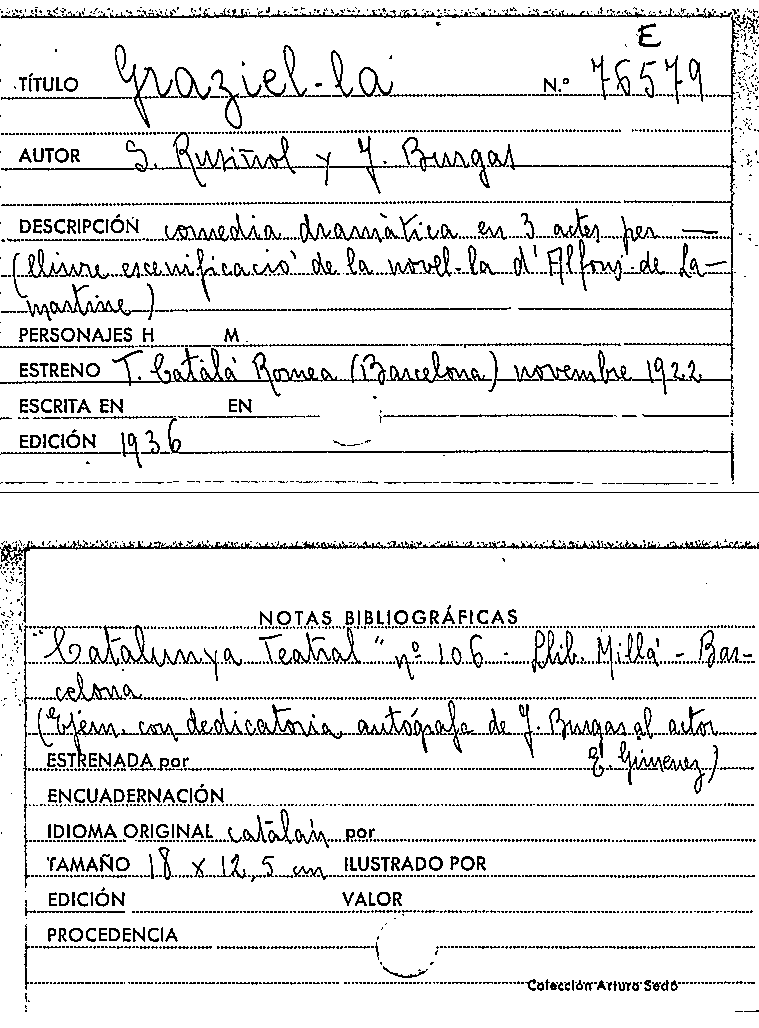 E
TÍTULO Graziel-la N.º 76579
AUTOR S. Rusiñol y J. Burgas
DESCRIPCIÓN comedia dramàtica en 3 actes per —
(lliure escenificació de la novel-la d'Alfons de La-
martine)
PERSONAJES H M
ESTRENO T. Català Romea (Barcelona) novembre 1922
ESCRITA EN EN
EDICIÓN 1936
NOTAS BIBLIOGRÁFICAS
"Catalunya Teatral" nº 106 - Llib. Millá - Bar-
celona
(Ejem. con dedicatoria autógrafa de J. Burgas al actor
ESTRENADA por E. Gimenez)
ENCUADERNACIÓN
IDIOMA ORIGINAL catalán por
TAMAÑO 18 x 12,5 cm ILUSTRADO POR
EDICIÓN VALOR
PROCEDENCIA
Colección Arturo Sedó